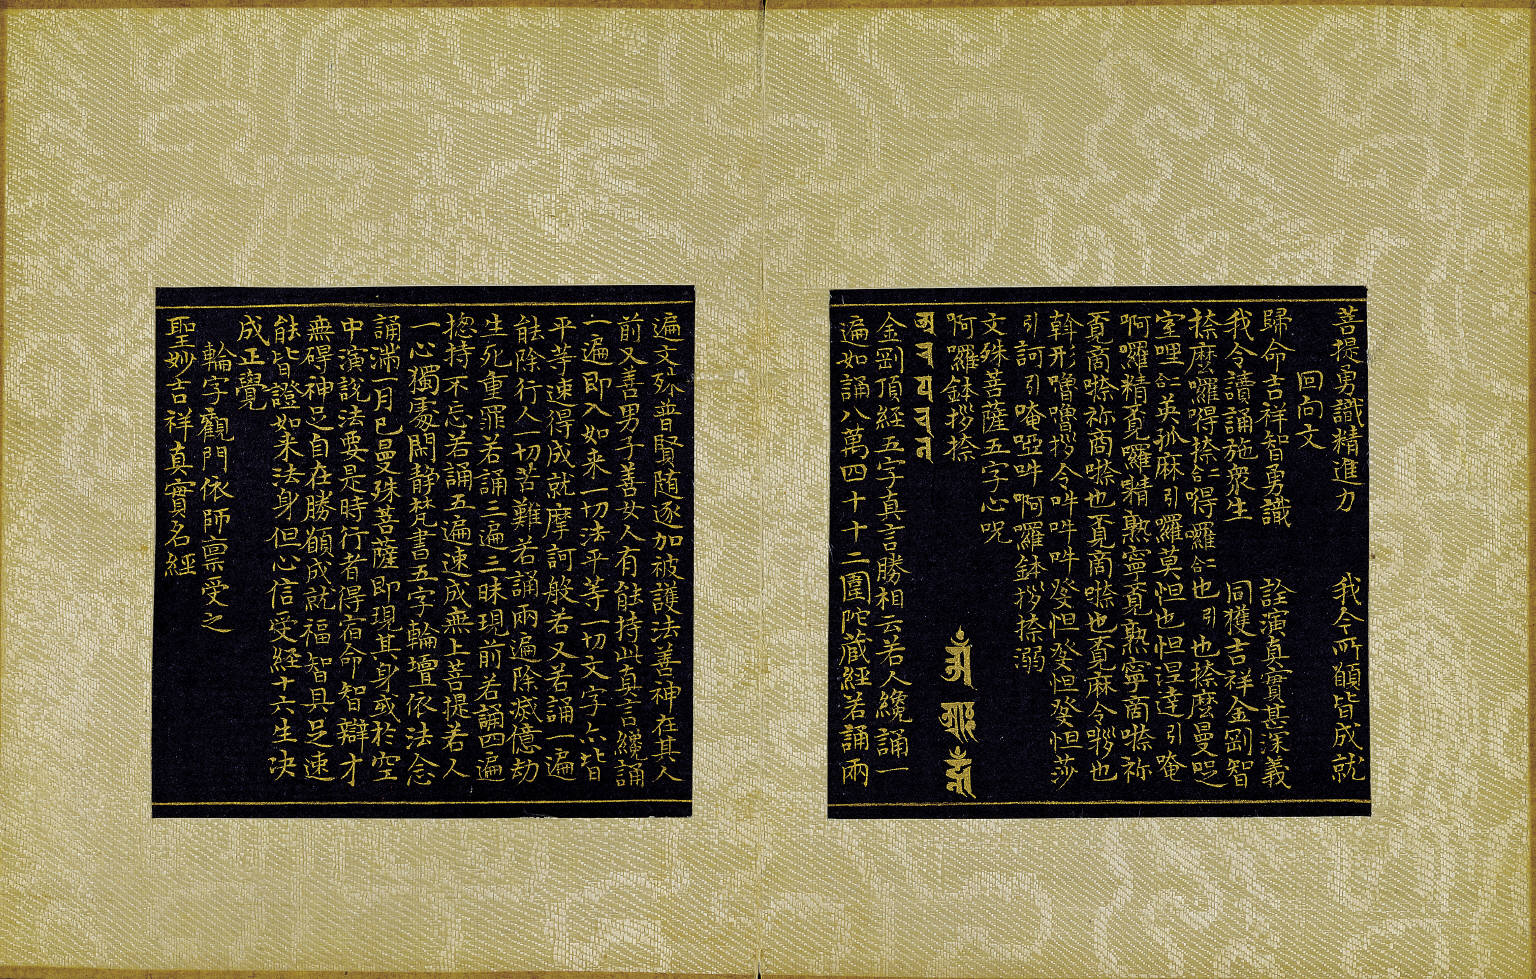 菩提勇識精進力　我今所願皆成就
回向文
歸命吉祥智勇識　詮演真實甚深義
我令讀誦施衆生　同獲吉祥金剛智
捺麽囉得捺仁得囉仁也引也捺麽曼
室哩仁英孤麻引囉莫怛也怛涅達引唵
啊囉精覔囉精熟寧覔熟寧商㗭祢
覔商㗭祢商㗭也覔商㗭也覔麻令拶也
斡形噌噌拶令吽吽吽發怛發怛發怛莎
引訶引唵啞吽啊囉鉢拶捺溺
文殊菩薩五字心呪
啊囉鉢拶捺
金剛頂經五字真言勝相云若人纔誦一
遍如誦八萬四千十二圍陀藏經若誦兩
遍文殊普賢随逐加被護法善神在其人
前又善男子善女人有能持此真言纔誦
一遍即入如来一切法平等一切文字亦皆
平等速得成就摩訶般若又若誦一遍
能除行人一切苦難若誦兩遍除滅億劫
生死重罪若誦三遍三昧現前若誦四遍
揔持不忘若誦五遍速成無上菩提若人
一心獨處閑静梵書五字輪壇依法念
誦滿一月已曼殊菩薩即現其身或於空
中演說法要是時行者得宿命智辯才
無碍神足自在勝願成就福智具足速
能皆證如来法身但心信受經十六生决
成正覺
輪字觀門依師禀受之
聖妙吉祥真實名經